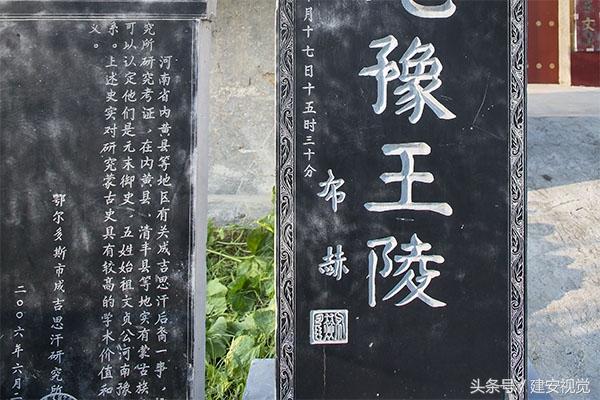 豫王陵
布赫
月十七日十五时三十分
河南省内黄县等地区有关成吉思汗后裔一事，
究所研究考证，在内黄县、清丰县等地实有蒙古族
可以认定他们是元末御史、五姓始祖文贞公河南豫
系。上述史实对研究蒙古史具有较高的学术价值和
义。
鄂尔多斯市成吉思汗研究所
二〇〇六年六月
头条号 / 建安视觉